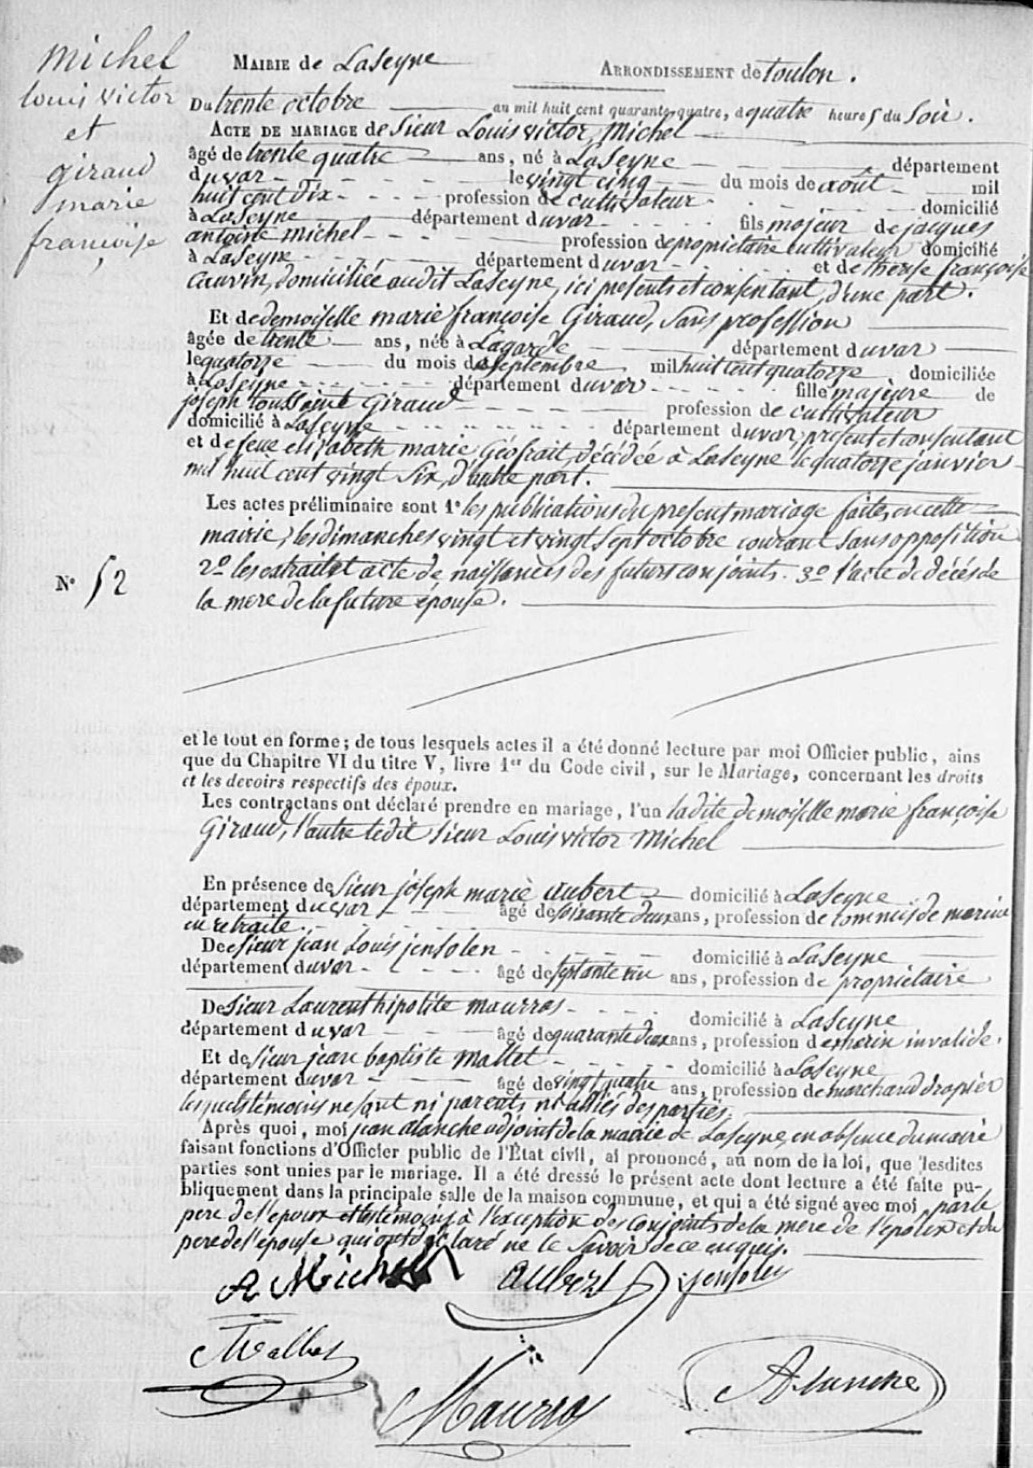 michel
louis victor
et
giraud
marie
françoise
N° 52
MAIRIE de Laseyne ARRONDISSEMENT de toulon.
Du trente octobre an mil huit cent quarante-quatre, à quatre heures du Soir.
ACTE DE MARIAGE de Sieur Louis victor Michel
âgé de trente quatre ans, né à LaSeyne département
du var le vingt cinq du mois de août mil
huit cent dix profession de cultivateur domicilié
à LaSeyne département du var fils majeur de jacques
antoine Michel profession de proprietaire cultivateur domicilié
à LaSeyne département du var et de thérèse françoise
Cauvin, domiciliée audit Laseyne, ici présents et consentant, d'une part.
Et de demoiselle marie françoise Giraud, Sans profession
âgée de trente ans, née à Lagarde département du var
le quatorze du mois de Septembre mil huit cent quatorze domiciliée
à LaSeyne département du var fille majeure de
joseph toussaint Giraud profession de cultivateur
domicilié à Laseyne département du var, présent et consentant
et de feue elizabeth marie Géofrait, décédée à Laseyne le quatorze janvier
mil huit cent vingt Six, d'autre part.
Les actes préliminaire sont 1° les publications du present mariage faites, en cette
mairie, les dimanches vingt et vingt Sept octobre courant Sans opposition
2° les extraits et acte de naissances des futurs conjoints. 3° l'acte de décés de
la mere de la future épouse.
et le tout en forme; de tous lesquels actes il a été donné lecture par moi Officier public, ains
que du Chapitre VI du titre V, livre 1er du Code civil, sur le Mariage, concernant les droits
et les devoirs respectifs des époux.
Les contractans ont déclaré prendre en mariage, l'un ladite demoiselle marie françoise
Giraud, l'autre ledit Sieur Louis victor Michel
En présence de Sieur joseph marie aubert domicilié à LaSeyne
département du var âgé de soixante deux ans, profession de commis de marine
en retraite.
De Sieur jean Louis jensolen domicilié à LaSeyne
département du var âgé de septante un ans, profession de propriétaire
De Sieur Laurent hipolite maurras domicilié à LaSeyne
département du var âgé de quarante deux ans, profession de marin invalide.
Et de Sieur jean baptiste Mallet domicilié à LaSeyne
département du var âgé de vingt quatre ans, profession de marchand drapier
lesquels témoins ne sont ni parents ni alliés des parties.
Après quoi, moi jean alanche adjoint de la mairie de LaSeyne, en absence du maire
faisant fonctions d'Officier public de l'État civil, ai prononcé, au nom de la loi, que lesdites
parties sont unies par le mariage. Il a été dressé le présent acte dont lecture a été faite pu-
bliquement dans la principale salle de la maison commune, et qui a été signé avec moi par le
pere de l'époux et les témoins à l'exception des conjoints de la mere de l'époux et du
pere de l'épouse qui ont déclaré ne le Savoir de ce enquis.
A Michel aubert jensolen
Maurras Alanche